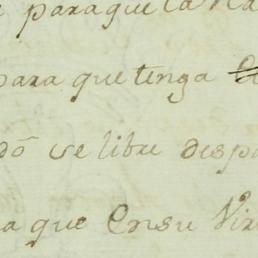 para que la
para que tenga
dõ se libre desp
a que en su Vir